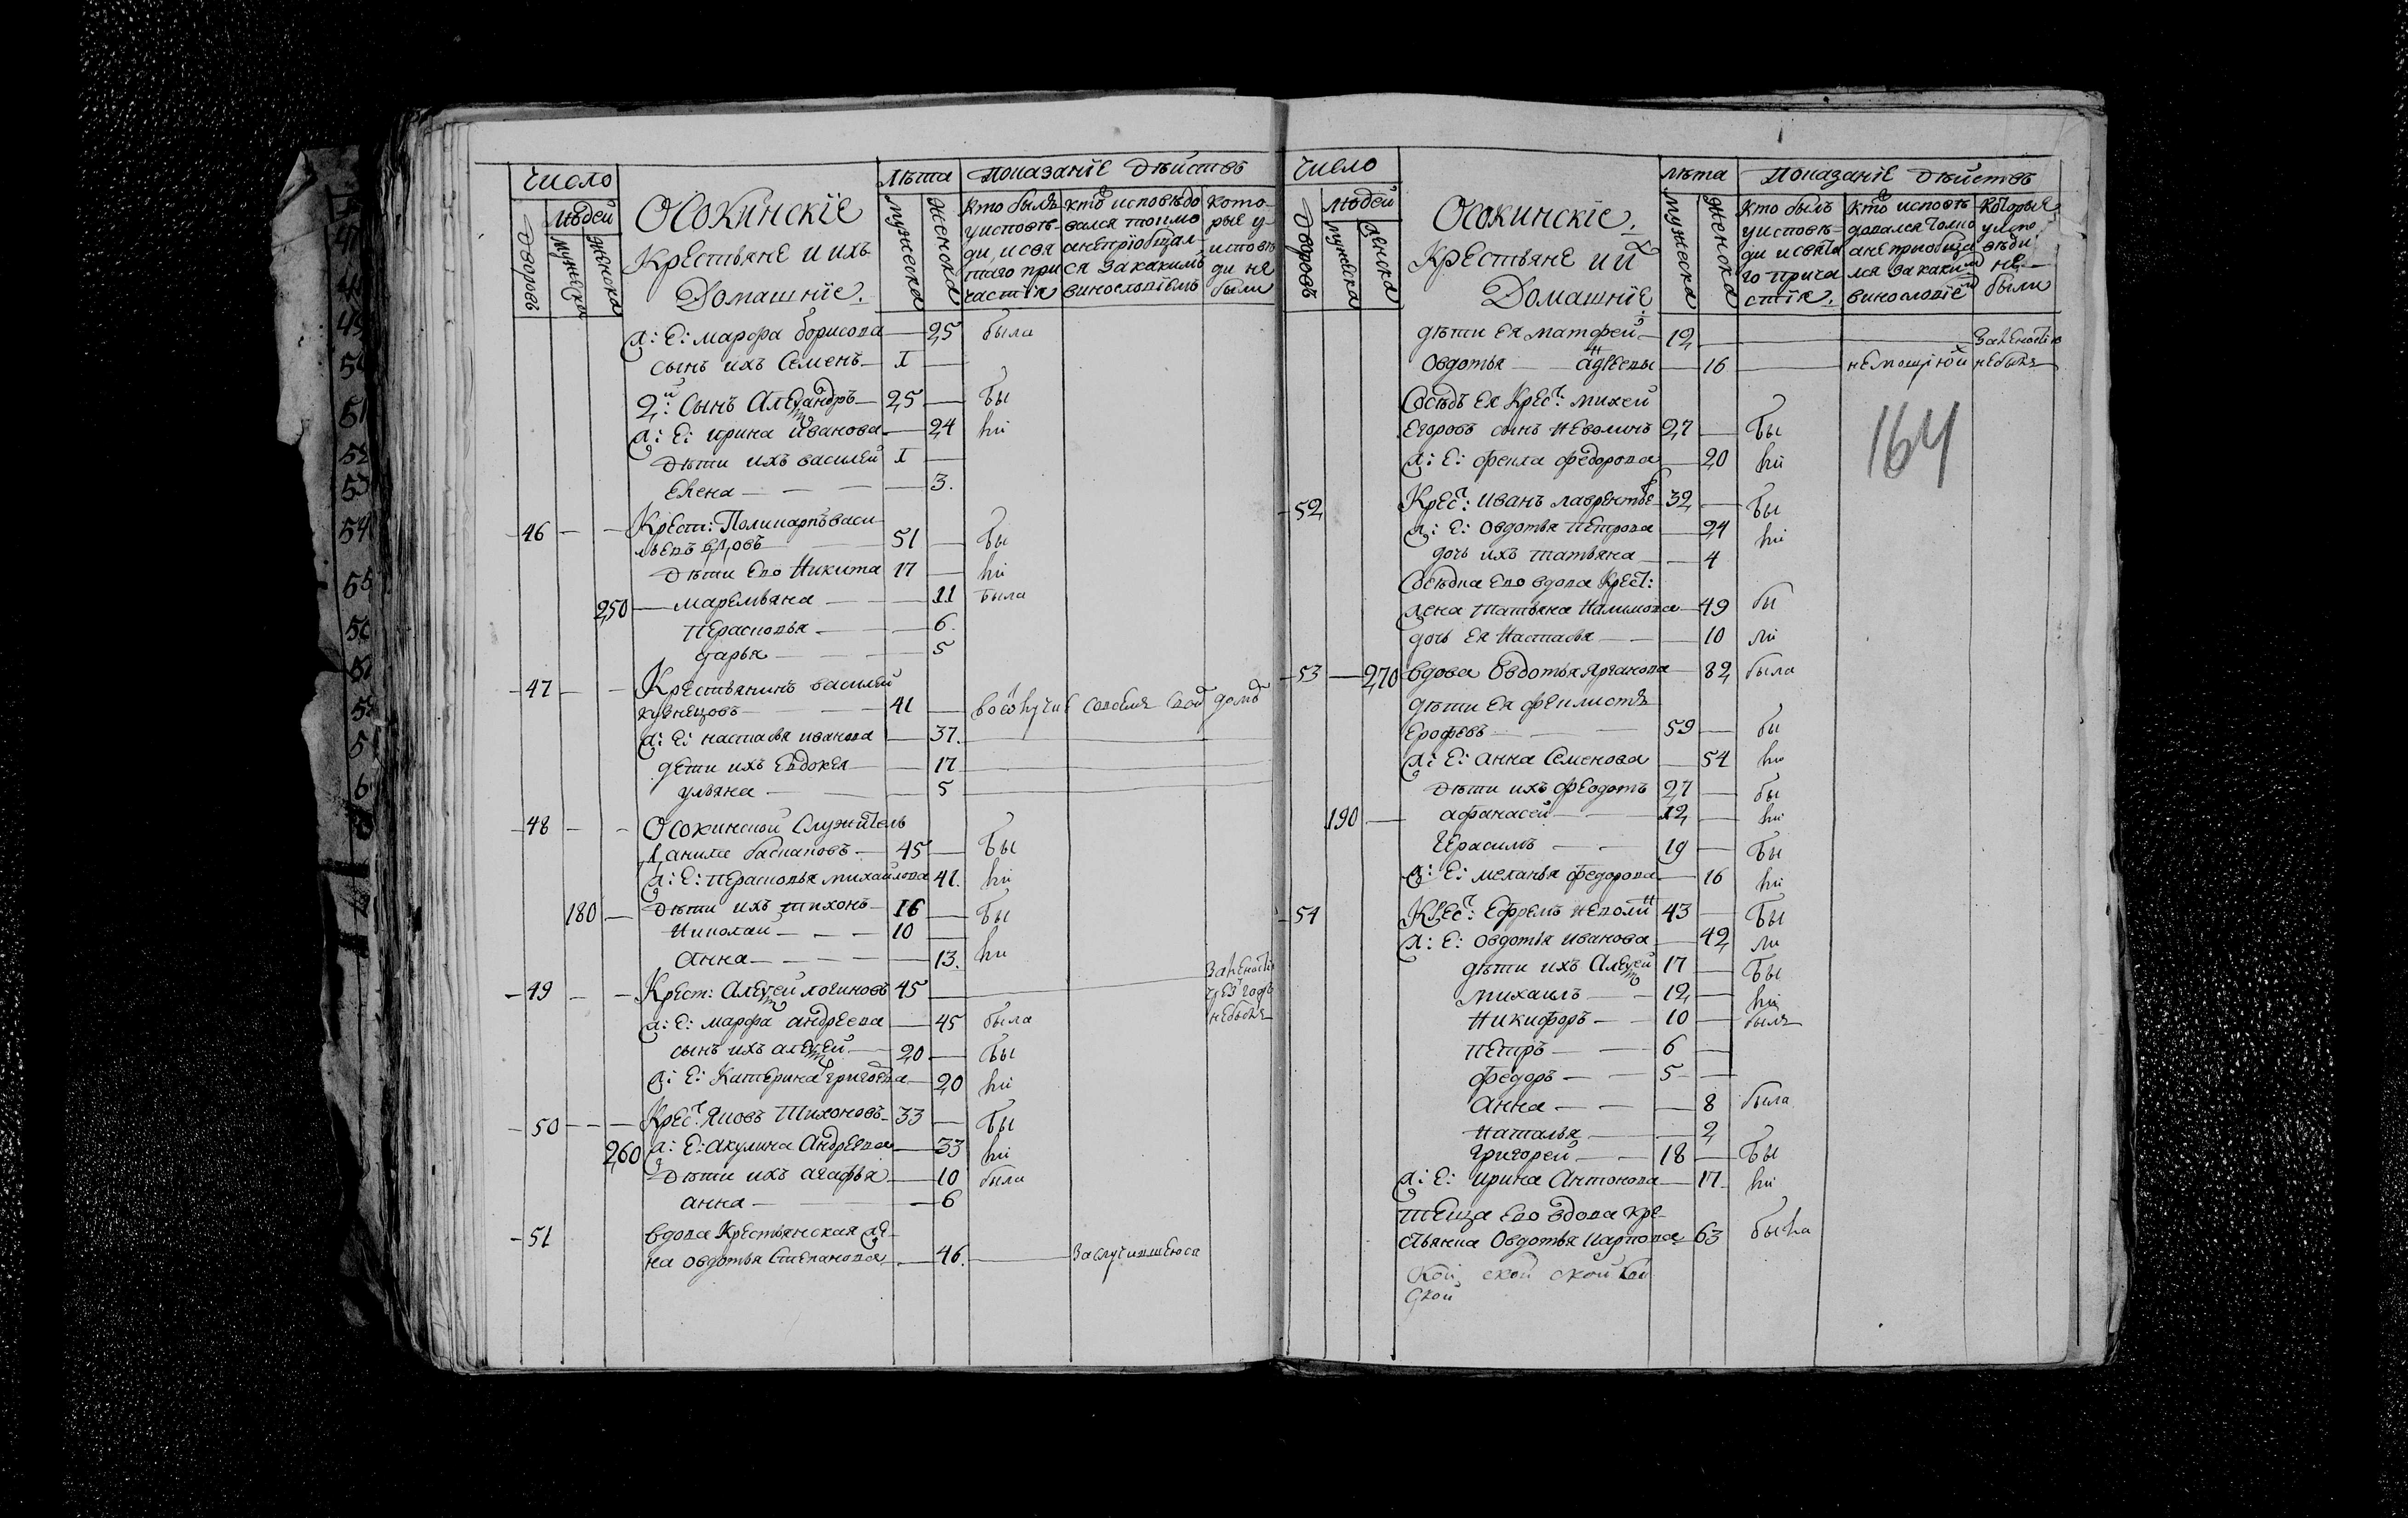 Число
Людей
Дворовъ
Мужеска
Женска
Осокинскіе
Крестьяне и ихъ
Домашніе.
Лѣта
Мужеска
Женска
Показаніе дѣйствъ
Кто былъ
у исповѣ-
ди, и свя
таго при
частія
кто исповѣдо
вался токмо
а не пріобщал-
ся за какимъ
винословіемъ
кото-
рые у
исповѣ
ди не
были
ж: е: марѳа борисова — 25 была
сынъ ихъ Семенъ — 1 —
2й: сынъ Алеѯандръ — 25 — бы
ж: е: ирина иванова — 24 ли
дѣти ихъ василей 1 —
елена — — — 3.
46 — — Крест: Поликарпъ васи
льевъ 51 — бы
дѣти ево Никита 17 — ли
250 — маремьяна — — 11 была
Перасковья — — 6.
дарья — — 5
47 — — Крестьянинъ василей
кузнецовъ — — 41 —
ж: е: настасья иванова — 37.
дети ихъ Евдокея — 17
ульяна — — 5
48 — — Осокинской служитель
Данила баскаковъ — 45 — бы
ж: е: Перасковья михаилова 41. ли
180 — дѣти ихъ тихонъ — 16 — бы
Николаи — — — 10 —
Анна — — — — 13. ли
49 — — Крест: Алеѯей логиновъ 45 —
за леностію
чрез годъ
небылъ
ж: е: марѳа андреева — 45 была
сынъ ихъ алеѯей — 20 — бы
ж: е: Катерина Григоева — 20 ли
50 — — Крест: Яковъ Тихоновъ — 33 — бы
260 ж: е: Акулина Андреева — 33 ли
дѣти ихъ агафья — 10 была
анна — — 6
51 вдова Крестьянская же
на овдотья Степанова — 46. —
Число
Людей
Дворовъ
мужеска
женска
Осокинскіе.
Крестьяне и ихъ
Домашніе
лѣта
мужеска
Женска
Показаніе дѣйствъ
Кто былъ
у исповѣ-
ди и свята
го прича
стія.
Кто исповѣ
довался токмо
а не приобща
лся за каким
винословіем
которые
у испо
вѣди
не
были
дѣти ея матфей — 12 — за леностію
Овдотья — Андреевы — 16 — небыли
Сосѣдъ ея Крест: михей
Егоровъ сынъ Неволинъ 27 — бы
ж: е: фекла федорова — 20 ли
164
52 Крест: Иванъ лаврентье 32 — бы
ж: е: Овдотья Петрова — 24 ли
дочь ихъ татьяна — — 4
Сосѣдка ево вдова Крест:
жена Татьяна Налимова — 49 бы
дочь ея Настасья — — 10 ли
53 — 270 вдова Овдотья — 82 была
дѣти ея
Ерофѣевъ — — 59 — бы
ж: е: анна Семенова — 54 ли
дѣти ихъ феодотъ 27 — бы
190 — афанасей — — 12 — ли
Герасимъ — — 19 — бы
ж: е: меланья федорова — 16 ли
54 Крест: Ефремъ Неволин 43 — бы
ж: е: овдотья иванова — 42 ли
дѣти ихъ Алеѯей 17 — бы
михаилъ — — 12 — ли
Никифоръ — — 10 — былъ
Петръ — — 6 —
федоръ — — 5 —
Анна — — — 8 была
Наталья — — 2
Григорей — — 18 — бы
ж: е: ирина Антонова — 17 ли
теща ево вдова кре-
стьянка Овдотья Карпова — 63 была
Кой ской ской кой
ской